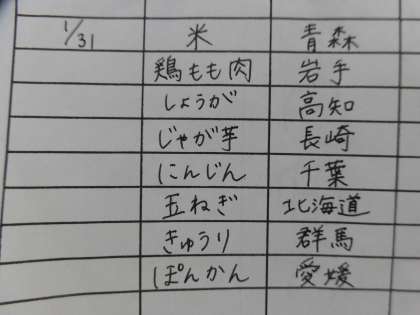 1/31 米 青森
鶏もも肉 岩手
しょうが 高知
じゃが芋 長崎
にんじん 千葉
玉ねぎ 北海道
きゅうり 群馬
ぽんかん 愛媛